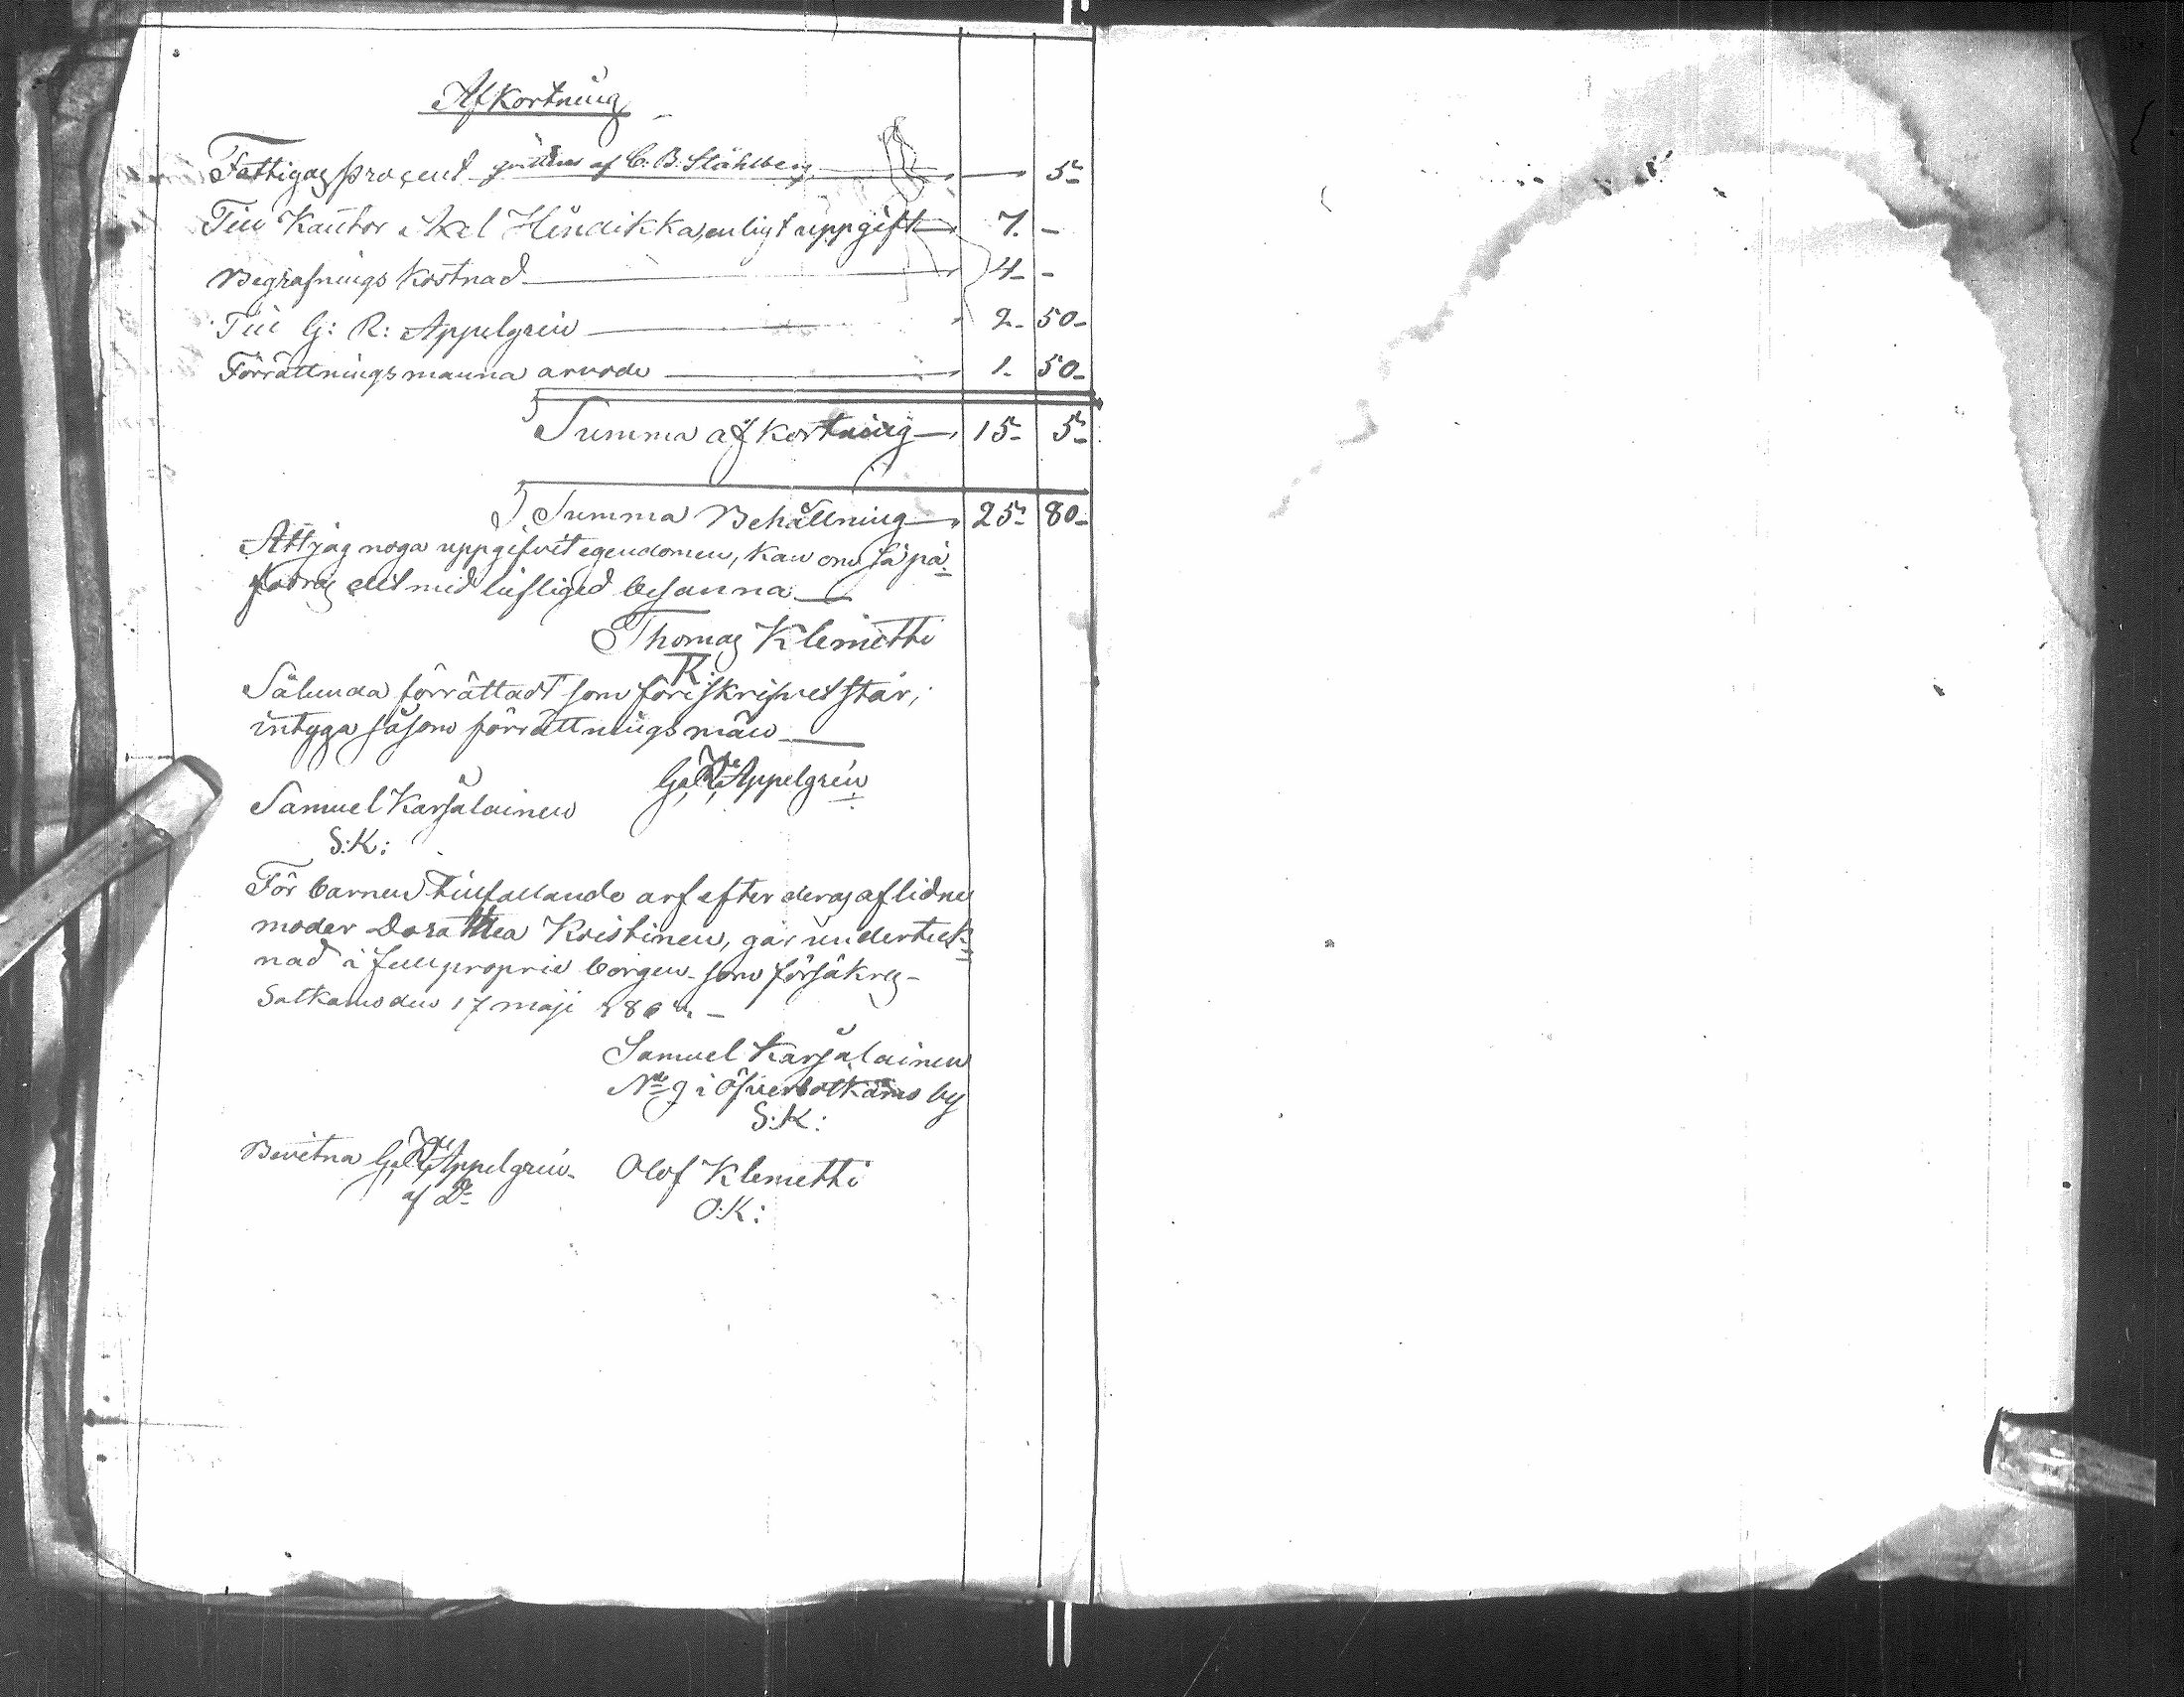 Afkortning
Fattigas procent qvitteras af C. B. Ståhlberg — 5-
Till Kantor Axel Hendikka, enligt uppgift 7. -
Begrafnings kostnad 4- -
Till G: R: Appelgrén 2- 50-
Förrättningsmanna arvode 1- 50-
Summa afkortning 15- 5-
Summa Behållning 25- 80-
Att jag noga uppgifvit egendomen, kan om så på-
fordras med lifliged besanna
Thomas Klemetti
Sålunda förrättadt som föreskrifvet står,
intyga såsom förrättningsmän
G. R. Appelgrén
Samuel Karjalainen
S:K:
För barnen tillfallande arf efter deras aflidne
moder Dorathea Kristinen, går underteck-
nad i full proprie borgen som försäkras-
Sotkamo den 17 maji
Samuel Karjalainen
No 9 i Öfversotkamo by
S:K:
Bevitna G. R. Appelgrén. Olof Klemetti
O:K: